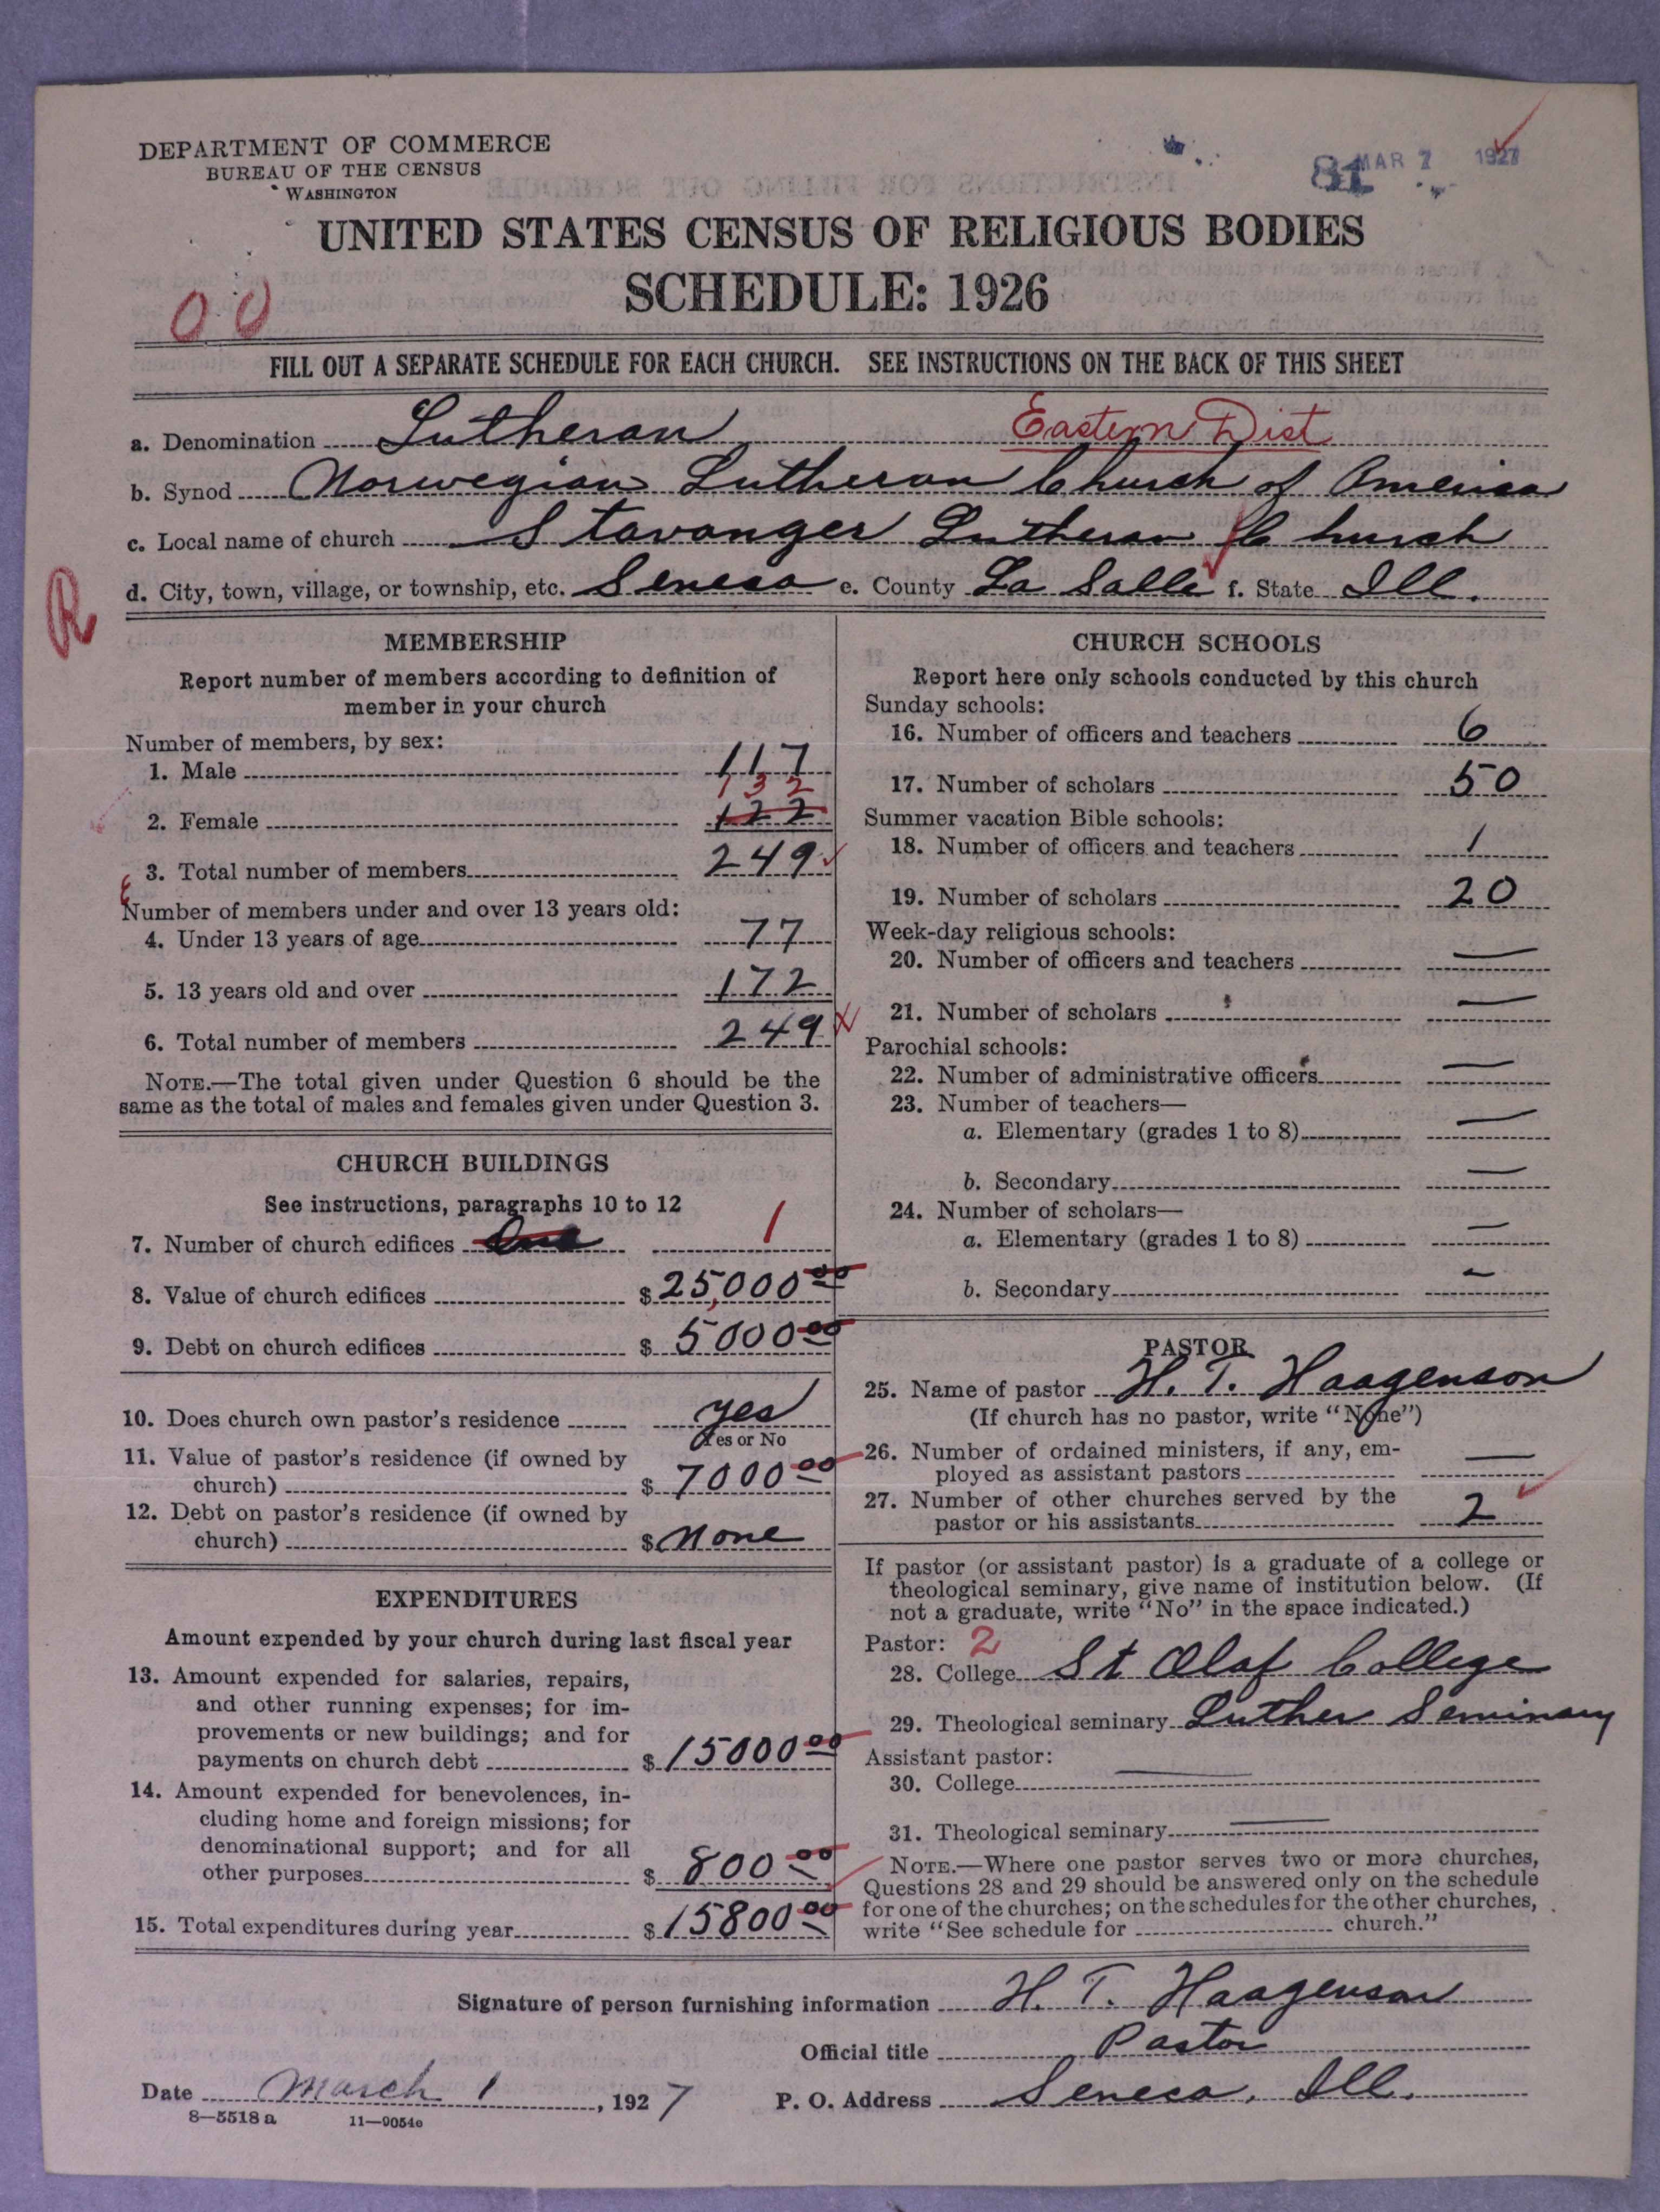 DEPARTMENT OF COMMERCE
BUREAU OF THE CENSUS
WASHINGTON
81 MAR 7 1927
UNITED STATES CENSUS OF RELIGIOUS BODIES
SCHEDULE: 1926
00
FILL OUT A SEPARATE SCHEDULE FOR EACH CHURCH. SEE INSTRUCTIONS ON THE BACK OF THIS SHEET
a. Denomination Lutheran Eastern Dist
b. Synod Norwegian Lutheran Church of America
c. Local name of church Stavanger Lutheran Church
d. City, town, village, or township, etc. Seneca e. County La Salle f. State Ill.
R
MEMBERSHIP
Report number of members according to definition of
member in your church
Number of members, by sex:
1. Male 117
132
2. Female 122
3. Total number of members 249
Number of members under and over 13 years old:
4. Under 13 years of age 77
5. 13 years old and over 172
6. Total number of members 249
NOTE.—The total given under Question 6 should be the
same as the total of males and females given under Question 3.
CHURCH BUILDINGS
See instructions, paragraphs 10 to 12
7. Number of church edifices One 1
8. Value of church edifices $25,000 00
9. Debt on church edifices $5000 00
10. Does church own pastor's residence yes
Yes or No
11. Value of pastor's residence (if owned by
church) $7000 00
12. Debt on pastor's residence (if owned by
church) $none
EXPENDITURES
Amount expended by your church during last fiscal year
13. Amount expended for salaries, repairs,
and other running expenses; for im-
provements or new buildings; and for
payments on church debt $15000 00
14. Amount expended for benevolences, in-
cluding home and foreign missions; for
denominational support; and for all
other purposes $800 00
15. Total expenditures during year $15800 00
CHURCH SCHOOLS
Report here only schools conducted by this church
Sunday schools:
16. Number of officers and teachers 6
17. Number of scholars 50
Summer vacation Bible schools:
18. Number of officers and teachers 1
19. Number of scholars 20
Week-day religious schools:
20. Number of officers and teachers —
21. Number of scholars —
Parochial schools:
22. Number of administrative officers —
23. Number of teachers—
a. Elementary (grades 1 to 8) —
b. Secondary —
24. Number of scholars—
a. Elementary (grades 1 to 8) —
b. Secondary —
PASTOR
25. Name of pastor H. T. Haagenson
(If church has no pastor, write "None")
26. Number of ordained ministers, if any, em-
ployed as assistant pastors —
27. Number of other churches served by the
pastor or his assistants 2
If pastor (or assistant pastor) is a graduate of a college or
theological seminary, give name of institution below. (If
not a graduate, write "No" in the space indicated.)
Pastor: 2
28. College St Olaf College
29. Theological seminary Luther Seminary
Assistant pastor:
30. College —
31. Theological seminary —
NOTE.—Where one pastor serves two or more churches,
Questions 28 and 29 should be answered only on the schedule
for one of the churches; on the schedules for the other churches,
write "See schedule for church."
Signature of person furnishing information H. T. Haagenson
Official title Pastor
Date March 1, 1927 P. O. Address Seneca, Ill.
8—5518 a 11—9054e